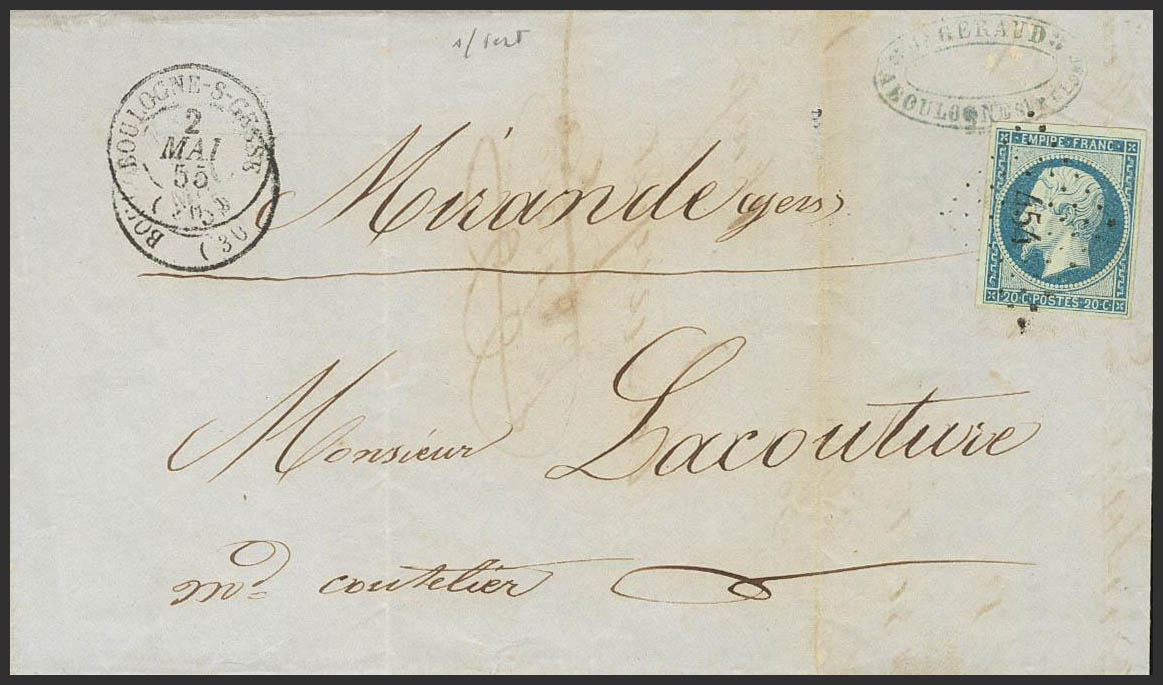 s/vert
GERAUD
A BOULOGNE SUR GESSE
BOULOGNE-S-GESSE
2
MAI
55
(30)
Mirande (gers)
EMPIRE·FRANC·
454
20·C·POSTES·20·C·
Monsieur Lacouture
md. coutelier